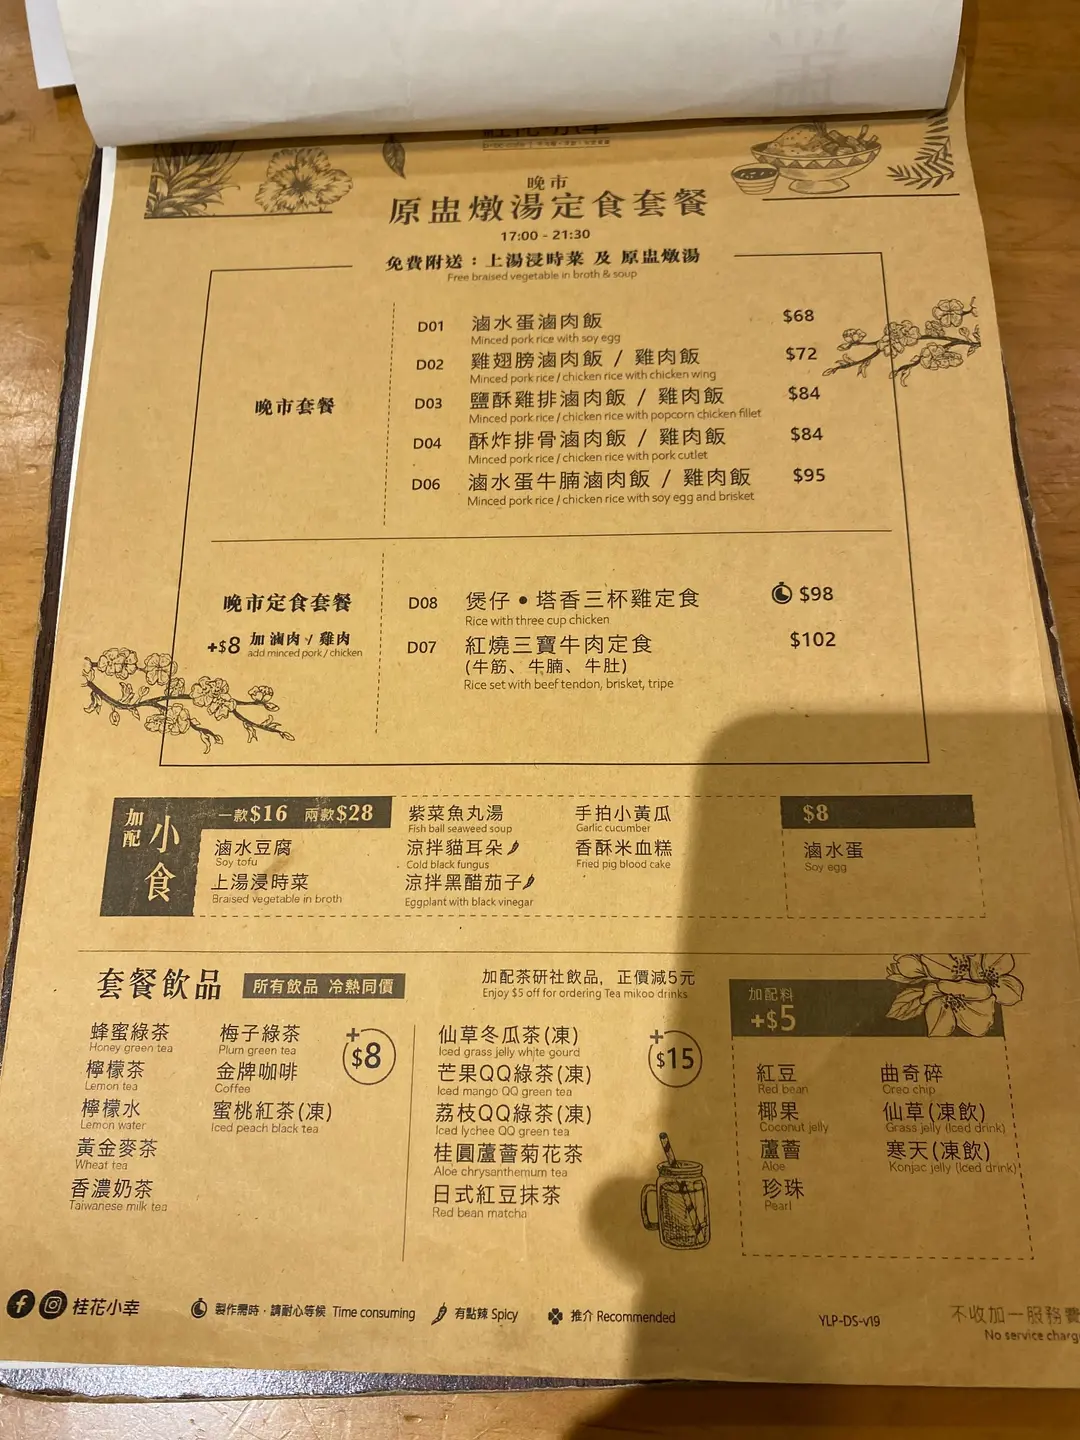 晚市
原盅燉湯定食套餐
17:00 - 21:30
免費附送：上湯浸時菜 及 原盅燉湯
Free braised vegetable in broth & soup
晚市套餐
D01 滷水蛋滷肉飯 $68
Minced pork rice with soy egg
D02 雞翅膀滷肉飯 / 雞肉飯 $72
Minced pork rice / chicken rice with chicken wing
D03 鹽酥雞排滷肉飯 / 雞肉飯 $84
Minced pork rice / chicken rice with popcorn chicken fillet
D04 酥炸排骨滷肉飯 / 雞肉飯 $84
Minced pork rice / chicken rice with pork cutlet
D06 滷水蛋牛腩滷肉飯 / 雞肉飯 $95
Minced pork rice / chicken rice with soy egg and brisket
晚市定食套餐
+$8 加 滷肉 / 雞肉
add minced pork / chicken
D08 煲仔•塔香三杯雞定食 $98
Rice with three cup chicken
D07 紅燒三寶牛肉定食 $102
(牛筋、牛腩、牛肚)
Rice set with beef tendon, brisket, tripe
加配
小食
一款$16 兩款$28
滷水豆腐
Soy tofu
上湯浸時菜
Braised vegetable in broth
紫菜魚丸湯
Fish ball seaweed soup
涼拌貓耳朵
Cold black fungus
涼拌黑醋茄子
Eggplant with black vinegar
手拍小黃瓜
Garlic cucumber
香酥米血糕
Fried pig blood cake
$8
滷水蛋
Soy egg
套餐飲品
所有飲品 冷熱同價
蜂蜜綠茶
Honey green tea
檸檬茶
Lemon tea
檸檬水
Lemon water
黃金麥茶
Wheat tea
香濃奶茶
Taiwanese milk tea
梅子綠茶
Plum green tea
金牌咖啡
Coffee
蜜桃紅茶(凍)
Iced peach black tea
+$8
加配茶研社飲品, 正價減5元
Enjoy $5 off for ordering Tea mikoo drinks
仙草冬瓜茶(凍)
Iced grass jelly white gourd
芒果QQ綠茶(凍)
Iced mango QQ green tea
荔枝QQ綠茶(凍)
Iced lychee QQ green tea
桂圓蘆薈菊花茶
Aloe chrysanthemum tea
日式紅豆抹茶
Red bean matcha
+$15
加配料
+$5
紅豆
Red bean
椰果
Coconut jelly
蘆薈
Aloe
珍珠
Pearl
曲奇碎
Oreo chip
仙草(凍飲)
Grass jelly (Iced drink)
寒天(凍飲)
Konjac jelly (Iced drink)
桂花小幸
製作需時，請耐心等候 Time consuming
有點辣 Spicy
推介 Recommended
YLP-DS-v19
不收加一服務費
No service charg